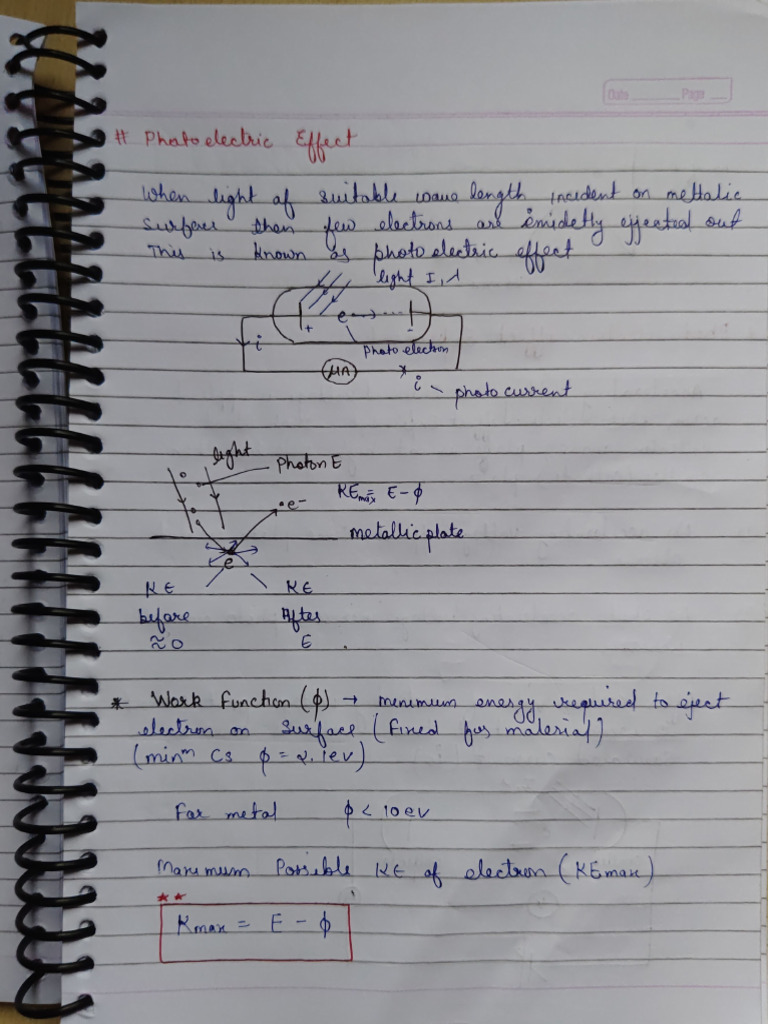 Date Page
# Photoelectric Effect
When light of suitable wave length incident on mettalic
Surface then few electrons are emidetly ejjected out
This is known as photo electric effect
light I, λ
+ e -
i photo electron
μA
i photo current
light
Photon E
e- KEmax = E - φ
metallic plate
e
KE KE
before After
≈ 0 E
* Work function (φ) → menimum energy required to eject
electron on surface (fixed for material)
(minm Cs φ = 2.1ev)
For metal φ < 10 ev
Maximum Possible KE of electron (KEmax)
**
Kmax = E - φ